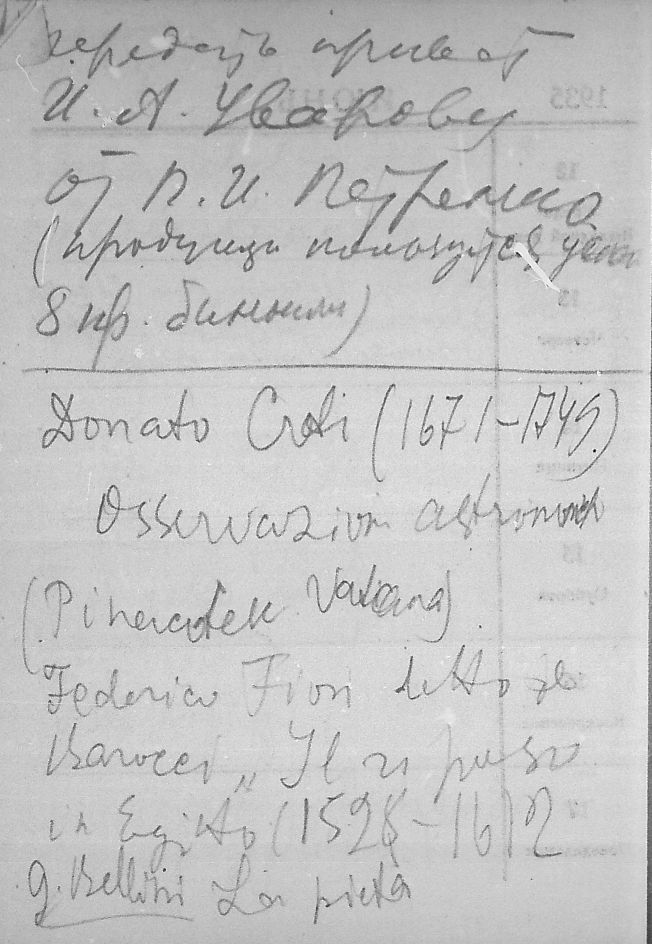 передать привет
И. А. Уварову
от П. И. Петренко
(продукци
8 кр.
Donato Creti (1671–1749)
Osservazioni astronomich
(Pinacotek Vatcana)
Federico Fiori detto il
Barocci „Il riposo
in Egitto (1528–1612
G. Bellini La pieta
1935